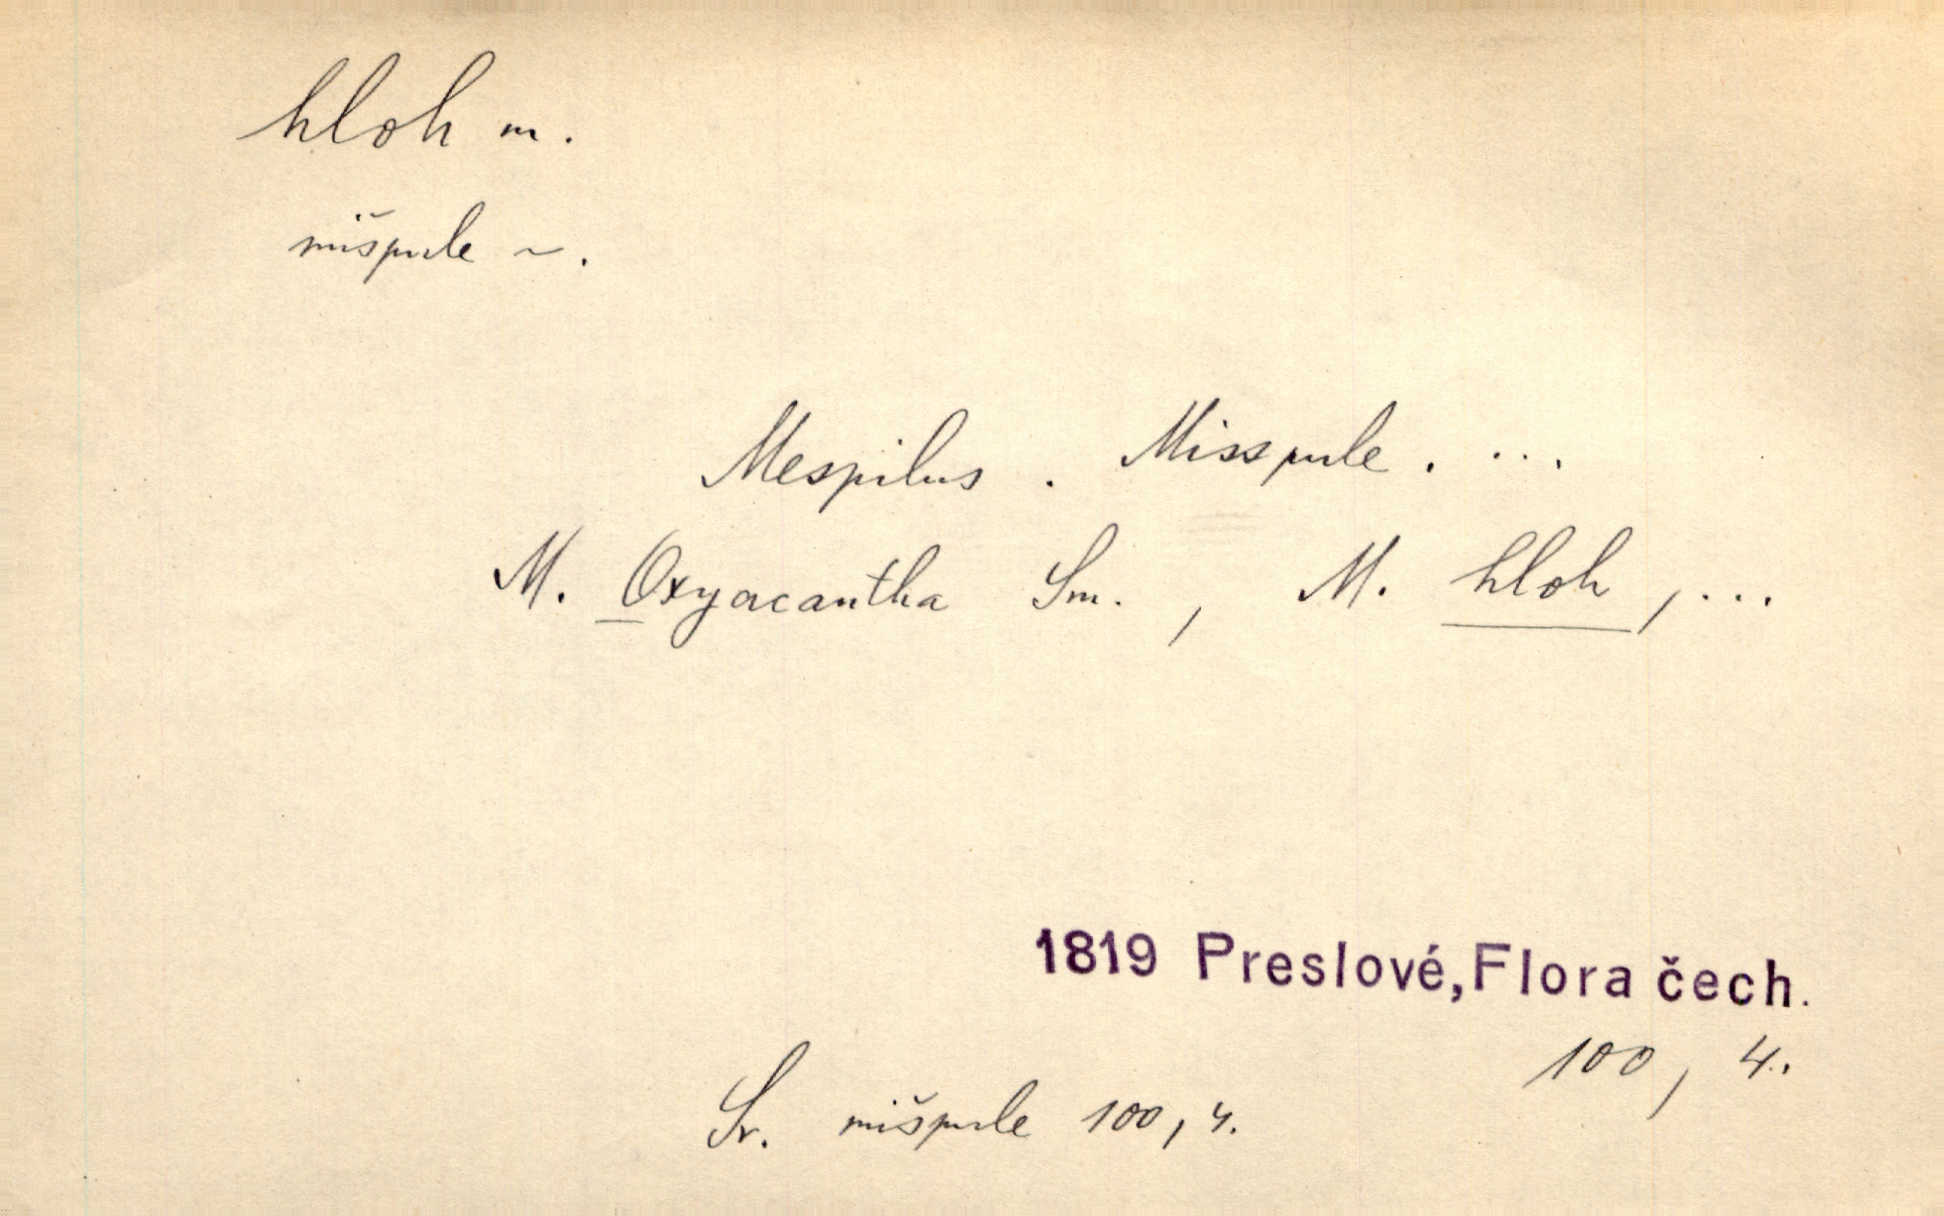 hloh m.
mišpule ~.
Mespilus. Misspule. ...
M. Oxyacantha Sm., M. hloh, ...
1819 Preslové, Flora čech.
100, 4.
Sr. mišpule 100, 4.